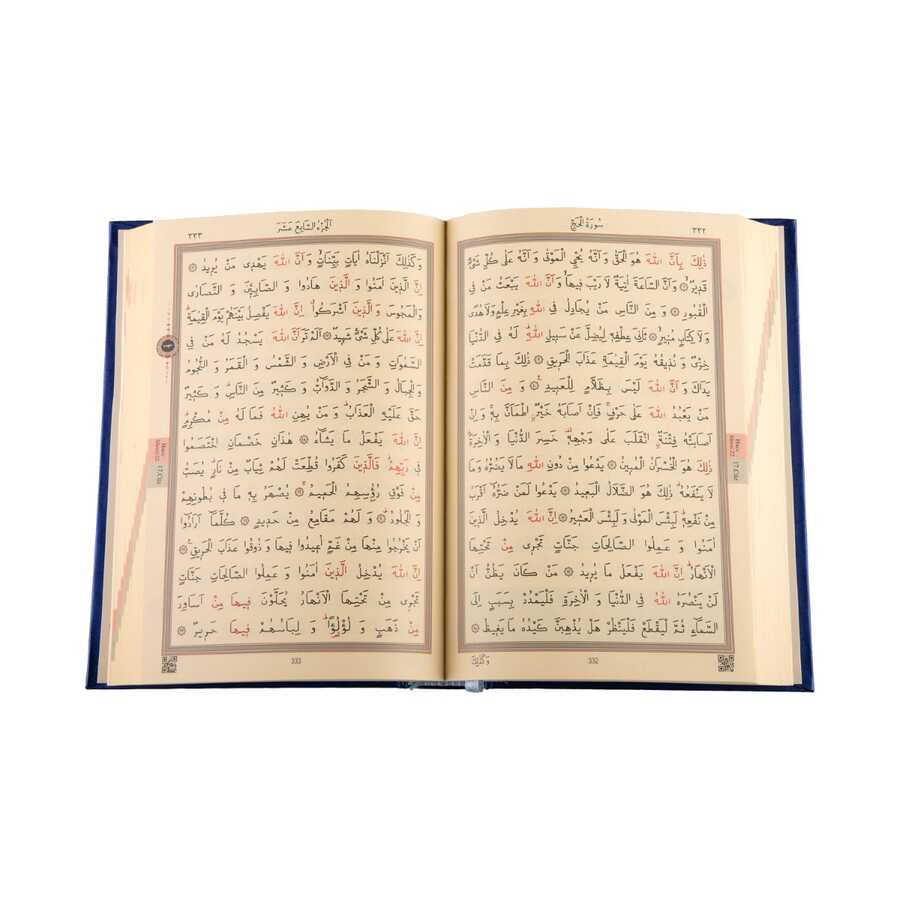 سُورَةُ الْحَجِّ ٣٣٢
ذٰلِكَ بِاَنَّ اللّٰهَ هُوَ الْحَقُّ وَ اَنَّهُ يُحْيِ الْمَوْتٰى وَ اَنَّهُ عَلٰى كُلِّ شَيْءٍ
قَدِيرٌ ۞ وَ اَنَّ السَّاعَةَ اٰتِيَةٌ لَا رَيْبَ فِيهَا وَ اَنَّ اللّٰهَ يَبْعَثُ مَنْ فِي
الْقُبُورِ ۞ وَ مِنَ النَّاسِ مَنْ يُجَادِلُ فِي اللّٰهِ بِغَيْرِ عِلْمٍ وَ لَا هُدًى
وَ لَا كِتَابٍ مُنِيرٍ ۞ ثَانِيَ عِطْفِهِ لِيُضِلَّ عَنْ سَبِيلِ اللّٰهِ لَهُ فِي الدُّنْيَا
خِزْيٌ وَ نُذِيقُهُ يَوْمَ الْقِيٰمَةِ عَذَابَ الْحَرِيقِ ۞ ذٰلِكَ بِمَا قَدَّمَتْ
يَدَاكَ وَ اَنَّ اللّٰهَ لَيْسَ بِظَلَّامٍ لِلْعَبِيدِ ۞ وَ مِنَ النَّاسِ
مَنْ يَعْبُدُ اللّٰهَ عَلٰى حَرْفٍ فَاِنْ اَصَابَهُ خَيْرٌ اطْمَاَنَّ بِهِ وَ اِنْ
اَصَابَتْهُ فِتْنَةٌ انْقَلَبَ عَلٰى وَجْهِهِ خَسِرَ الدُّنْيَا وَ الْاٰخِرَةَ
ذٰلِكَ هُوَ الْخُسْرَانُ الْمُبِينُ ۞ يَدْعُوا مِنْ دُونِ اللّٰهِ مَا لَا يَضُرُّهُ وَ مَا
لَا يَنْفَعُهُ ذٰلِكَ هُوَ الضَّلَالُ الْبَعِيدُ ۞ يَدْعُوا لَمَنْ ضَرُّهُ اَقْرَبُ
مِنْ نَفْعِهِ لَبِئْسَ الْمَوْلٰى وَ لَبِئْسَ الْعَشِيرُ ۞ اِنَّ اللّٰهَ يُدْخِلُ الَّذِينَ
اٰمَنُوا وَ عَمِلُوا الصَّالِحَاتِ جَنَّاتٍ تَجْرِي مِنْ تَحْتِهَا
الْاَنْهَارُ اِنَّ اللّٰهَ يَفْعَلُ مَا يُرِيدُ ۞ مَنْ كَانَ يَظُنُّ اَنْ
لَنْ يَنْصُرَهُ اللّٰهُ فِي الدُّنْيَا وَ الْاٰخِرَةِ فَلْيَمْدُدْ بِسَبَبٍ اِلَى
السَّمَاءِ ثُمَّ لْيَقْطَعْ فَلْيَنْظُرْ هَلْ يُذْهِبَنَّ كَيْدُهُ مَا يَغِيظُ ۞
Hacc
Sûresi:22
17.Cüz
332
وَ كَذٰلِكَ
٣٣٣ اَلْجُزْءُ السَّابِعَ عَشَرَ
وَ كَذٰلِكَ اَنْزَلْنَاهُ اٰيَاتٍ بَيِّنَاتٍ وَ اَنَّ اللّٰهَ يَهْدِي مَنْ يُرِيدُ ۞
اِنَّ الَّذِينَ اٰمَنُوا وَ الَّذِينَ هَادُوا وَ الصَّابِـِٔينَ وَ النَّصَارٰى
وَ الْمَجُوسَ وَ الَّذِينَ اَشْرَكُوا اِنَّ اللّٰهَ يَفْصِلُ بَيْنَهُمْ يَوْمَ الْقِيٰمَةِ
اِنَّ اللّٰهَ عَلٰى كُلِّ شَيْءٍ شَهِيدٌ ۞ اَلَمْ تَرَ اَنَّ اللّٰهَ يَسْجُدُ لَهُ مَنْ فِي
السَّمٰوَاتِ وَ مَنْ فِي الْاَرْضِ وَ الشَّمْسُ وَ الْقَمَرُ وَ النُّجُومُ
وَ الْجِبَالُ وَ الشَّجَرُ وَ الدَّوَابُّ وَ كَثِيرٌ مِنَ النَّاسِ وَ كَثِيرٌ
حَقَّ عَلَيْهِ الْعَذَابُ وَ مَنْ يُهِنِ اللّٰهُ فَمَا لَهُ مِنْ مُكْرِمٍ
اِنَّ اللّٰهَ يَفْعَلُ مَا يَشَاءُ ۞ هٰذَانِ خَصْمَانِ اخْتَصَمُوا
فِي رَبِّهِمْ فَالَّذِينَ كَفَرُوا قُطِّعَتْ لَهُمْ ثِيَابٌ مِنْ نَارٍ يُصَبُّ
مِنْ فَوْقِ رُؤُسِهِمُ الْحَمِيمُ ۞ يُصْهَرُ بِهِ مَا فِي بُطُونِهِمْ
وَ الْجُلُودُ ۞ وَ لَهُمْ مَقَامِعُ مِنْ حَدِيدٍ ۞ كُلَّمَا اَرَادُوا
اَنْ يَخْرُجُوا مِنْهَا مِنْ غَمٍّ اُعِيدُوا فِيهَا وَ ذُوقُوا عَذَابَ الْحَرِيقِ ۞
اِنَّ اللّٰهَ يُدْخِلُ الَّذِينَ اٰمَنُوا وَ عَمِلُوا الصَّالِحَاتِ جَنَّاتٍ
تَجْرِي مِنْ تَحْتِهَا الْاَنْهَارُ يُحَلَّوْنَ فِيهَا مِنْ اَسَاوِرَ
مِنْ ذَهَبٍ وَ لُؤْلُؤًا وَ لِبَاسُهُمْ فِيهَا حَرِيرٌ ۞
Hacc
Sûresi:22
17.Cüz
333